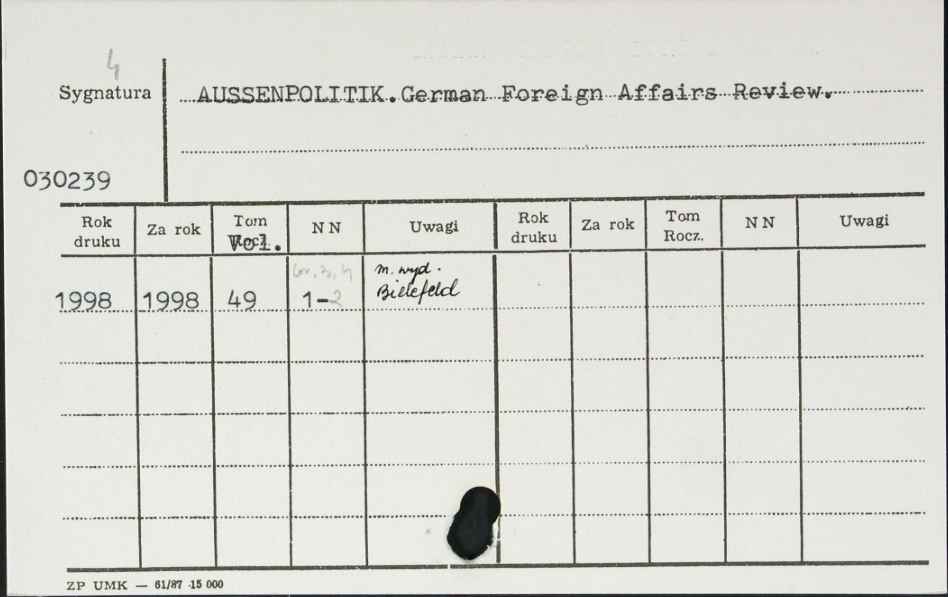 4
Sygnatura AUSSENPOLITIK. German Foreign Affairs Review.
030239
Rok druku Za rok Tom Vol. NN Uwagi Rok druku Za rok Tom Rocz. NN Uwagi
m. wyd.
1998 1998 49 1-2 Bielefeld
ZP UMK — 61/87 15 000